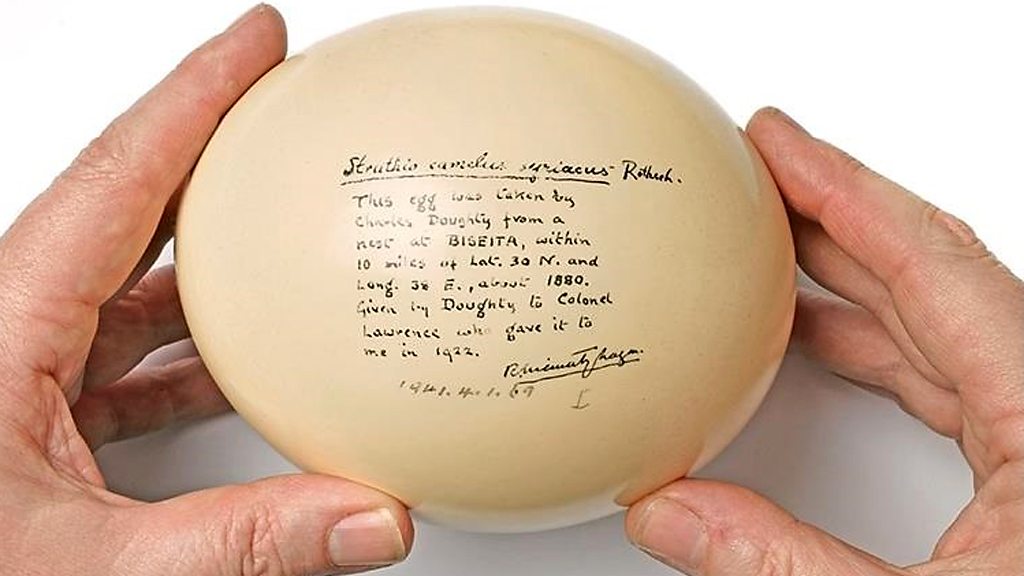 Struthio camelus syriacus Rothsch.
This egg was taken by
Charles Doughty from a
nest at BISEITA, within
10 miles of Lat. 30 N. and
Long. 38 E., about 1880.
Given by Doughty to Colonel
Lawrence who gave it to
me in 1922.
1941.4.1.69 I